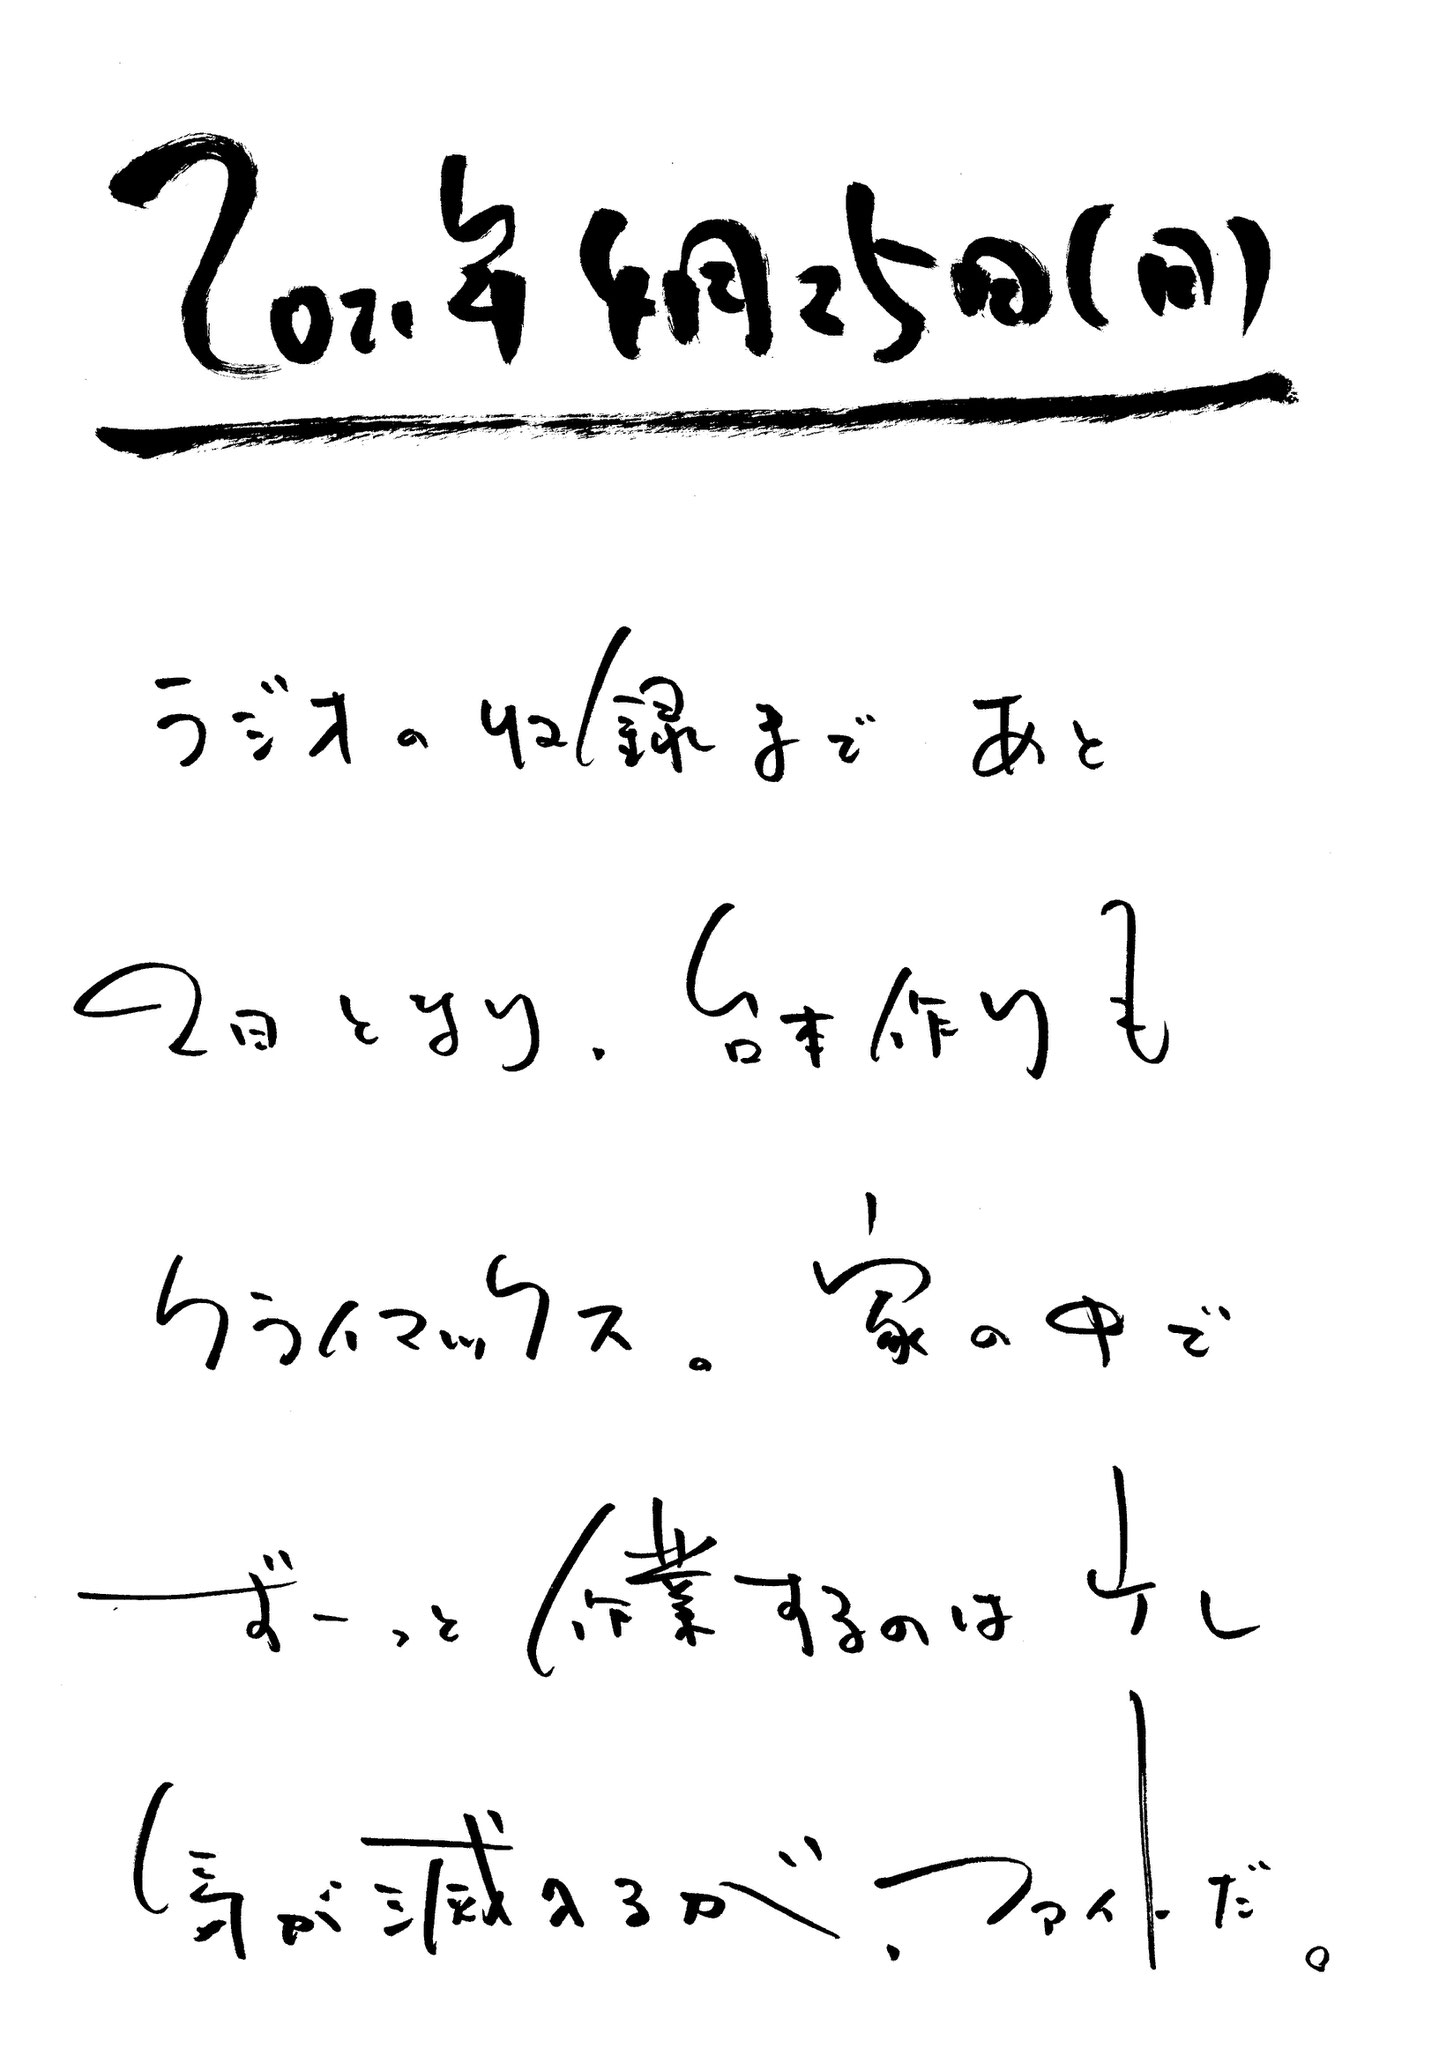 2021年4月25日(日)
ラジオの収録まであと
2日となり、台本作りも
クライマックス。家の中で
ずーっと作業するのは少し
気が滅入るが、ファイトだ。